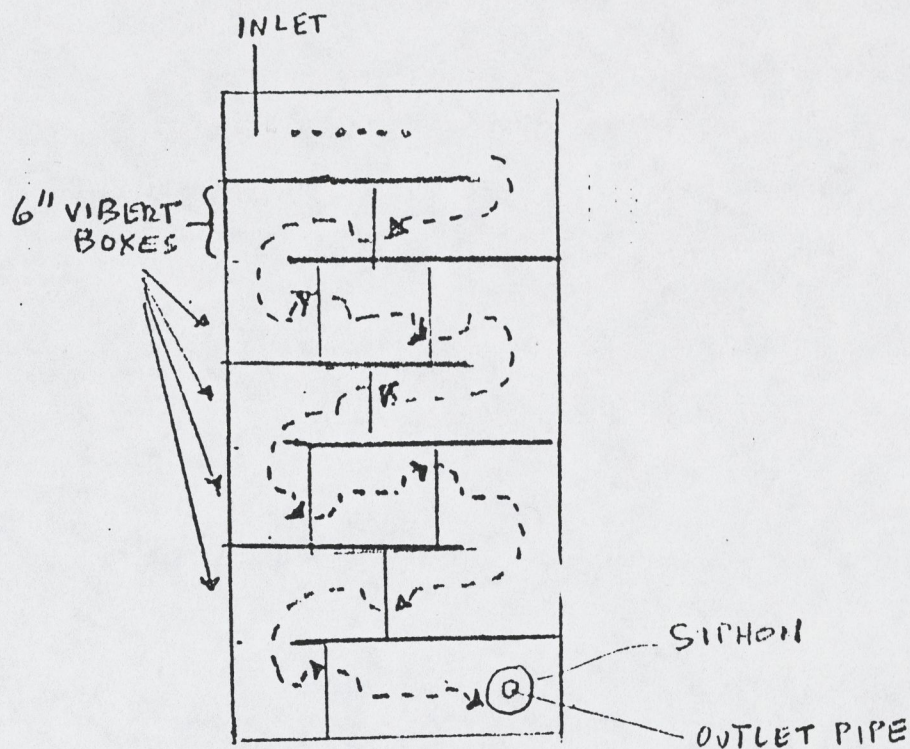 INLET
6" VIBERT
BOXES
SIPHON
OUTLET PIPE